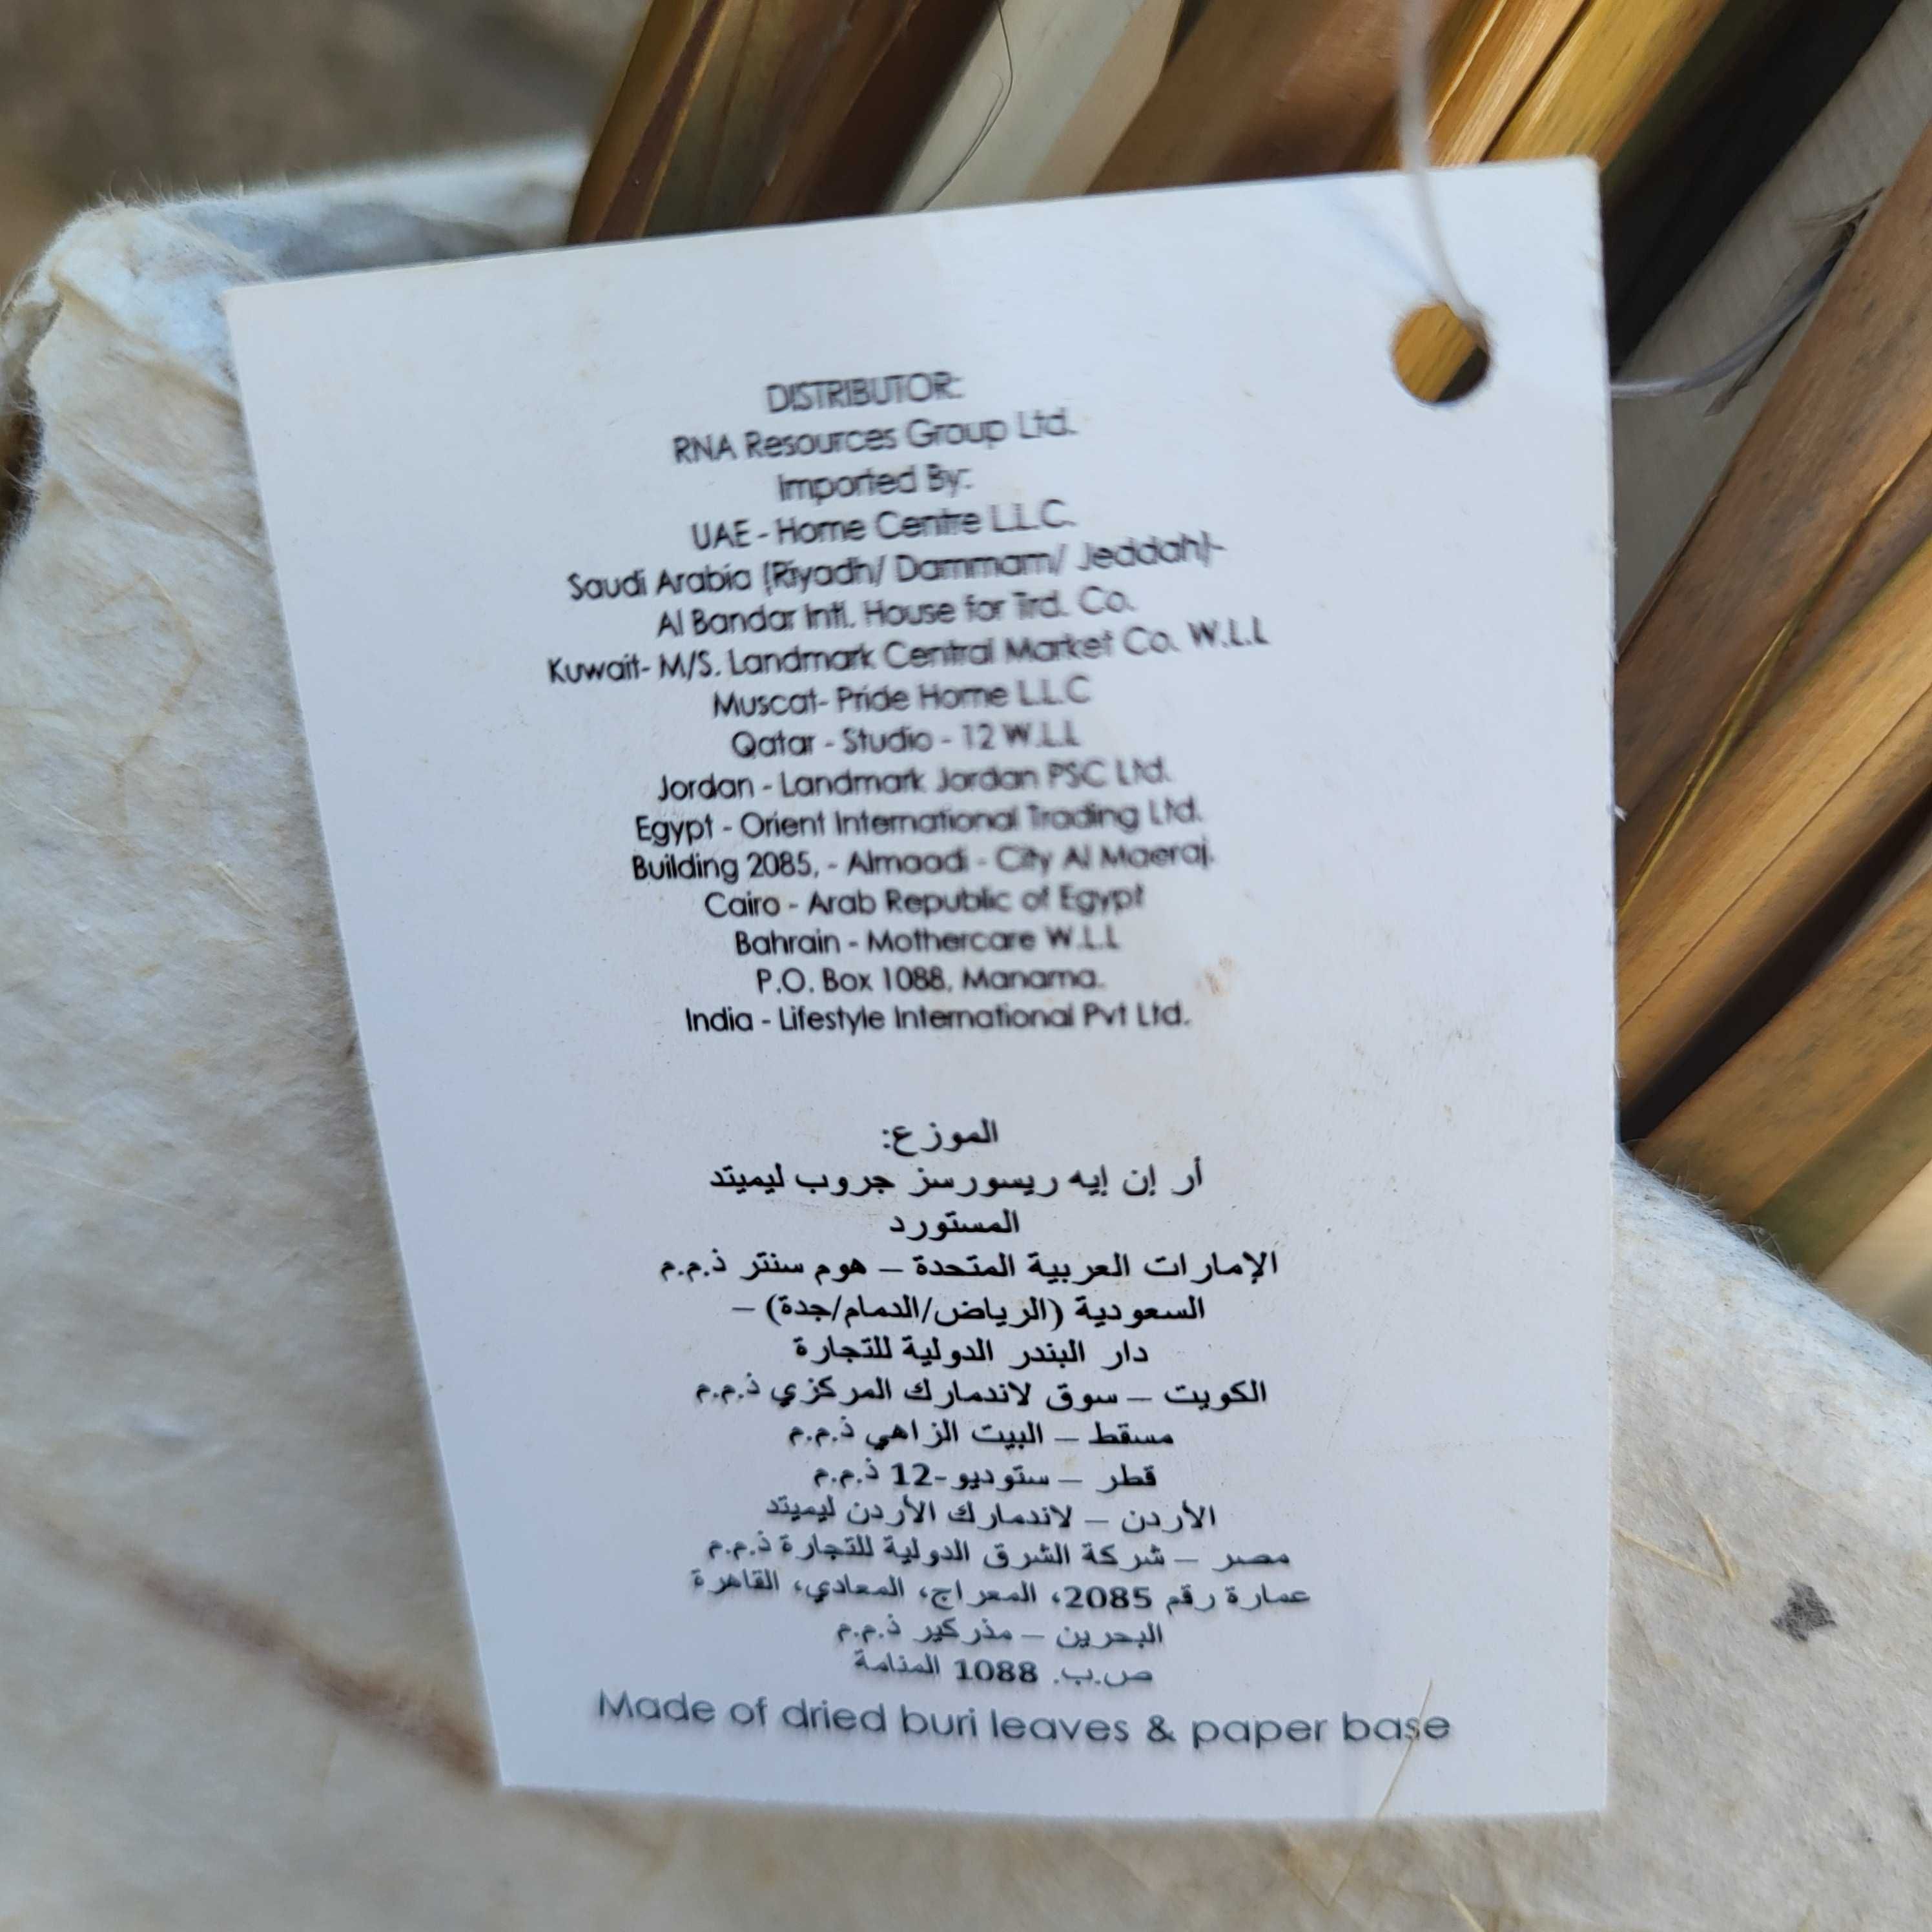 DISTRIBUTOR:
RNA Resources Group Ltd.
Imported By:
UAE - Home Centre L.L.C.
Saudi Arabia (Riyadh/ Dammam/ Jeddah)-
Al Bandar Intl. House for Trd. Co.
Kuwait- M/S. Landmark Central Market Co. W.L.L
Muscat- Pride Home L.L.C
Qatar - Studio - 12 W.L.L
Jordan - Landmark Jordan PSC Ltd.
Egypt - Orient International Trading Ltd.
Building 2085, - Almaadi - City Al Maeraj.
Cairo - Arab Republic of Egypt
Bahrain - Mothercare W.L.L
P.O. Box 1088, Manama.
India - Lifestyle International Pvt Ltd.
الموزع:
أر إن إيه ريسورسز جروب ليميتد
المستورد
الإمارات العربية المتحدة – هوم سنتر ذ.م.م
السعودية (الرياض/الدمام/جدة) –
دار البندر الدولية للتجارة
الكويت – سوق لاندمارك المركزي ذ.م.م
مسقط – البيت الزاهي ذ.م.م
قطر – ستوديو-12 ذ.م.م
الأردن – لاندمارك الأردن ليميتد
مصر – شركة الشرق الدولية للتجارة ذ.م.م
عمارة رقم 2085، المعراج، المعادي، القاهرة
البحرين – مذركير ذ.م.م
ص.ب. 1088 المنامة
Made of dried buri leaves & paper base